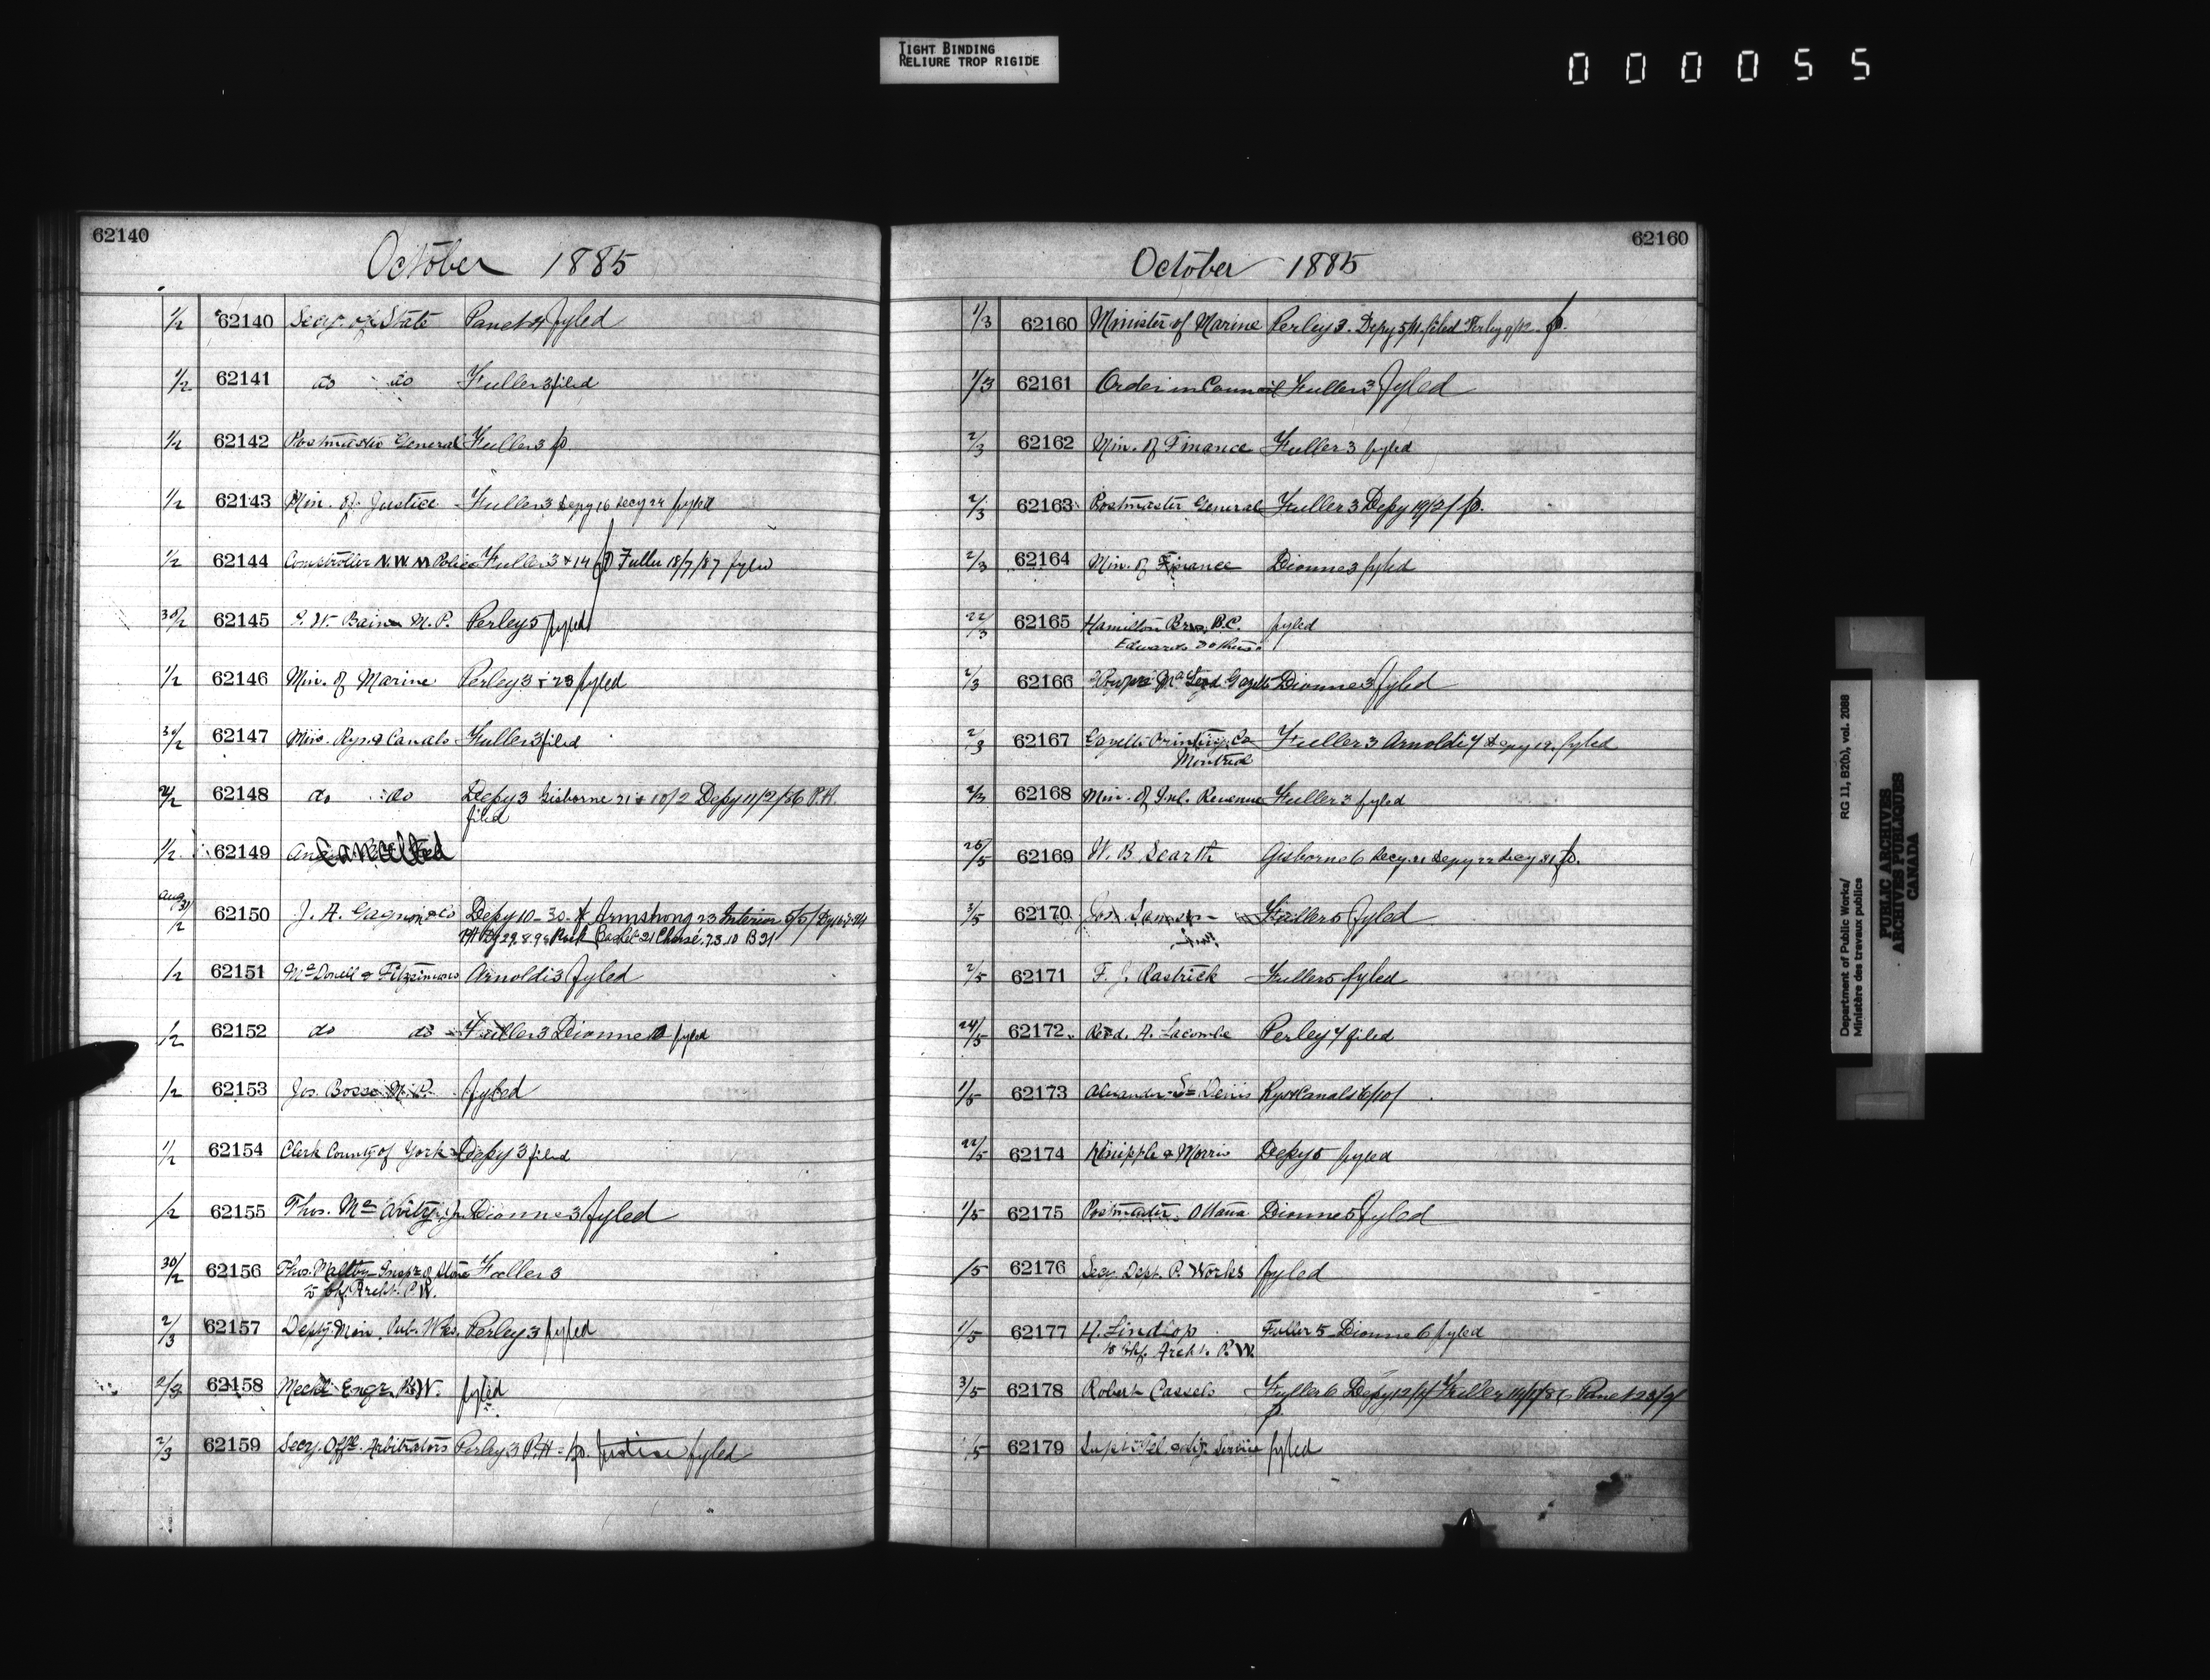 TIGHT BINDING
RELIURE TROP RIGIDE
000055
62140
October 1885
1/2 62140 Secy. of State Panet 4 fyled
1/2 62141 do do Fuller 3 filed
1/2 62142 Postmaster General Fuller 3 p.
1/2 62143 Min. of Justice Fuller 3 Depy 16 Secy 24 fyled
1/2 62144 Comptroller N.W.M Police Fuller 3 & 14 p Fuller 18/7/87 fyled
30/2 62145 Bain M.P. Perley 5 fyled
1/2 62146 Min. of Marine Perley 3 & 23 fyled
30/2 62147 Min. Rys. & Canals Fuller 3 filed
62148 do do Depy 3 Gisborne 21 & 10/2 Depy 11/2/86 P.H.
filed
1/2 62149 Cancelled
Aug 31/2 62150 J. A. Gagnon & Co Depy 10-30- Armstrong 23 Interior 5/5/
1/2 62151 McDonell & Fitzsimons Arnoldi 3 fyled
1/2 62152 do do Fuller 3 Dionne fyled
1/2 62153 Jos. Bosse M.P. fyled
1/2 62154 Clerk County of York Depy 3 filed
1/2 62155 Thos. Mc Avity Dionne 3 fyled
30/2 62156 Thos. Maltby Inspr of Stone Fuller 3
to Chf. Archt. P.W.
2/3 62157 Depty. Min. Pub. Wks. Perley 3 fyled
2/3 62158 Mechl Engr. P.W. fyled
2/3 62159 Secy. Offl. Arbitrators Perley 3 P.H. p. Justice fyled
62160
October 1885
1/3 62160 Minister of Marine Perley 3. Depy 5/11 filed Perley 9/12 p.
1/3 62161 Order in Council Fuller 3 fyled
2/3 62162 Min. of Finance Fuller 3 fyled
2/3 62163 Postmaster General Fuller 3 Depy 19/2/ p.
2/3 62164 Min. of Finance Dionne 3 fyled
22/3 62165 Hamilton Bros, B.C. fyled
Edwards
2/3 62166 McLeod Gazette Dionne 3 fyled
2/3 62167 Gazette Printing Co Fuller 3 Arnoldi 7 Depy 12. fyled
Montreal
2/3 62168 Min. of Inl. Revenue Fuller 3 fyled
62169 W. B. Scarth Gisborne 6 Secy. 21 Depy 22 Secy 31 p.
3/5 62170 Jos. Fuller 5 fyled
2/5 62171 F. J. Rastrick Fuller 5 fyled
24/5 62172 Revd. A. Lacombe Perley 7 filed
1/5 62173 Alexander St Denis Rys & Canals 6/10/
22/5 62174 Kinipple & Morris Depy 5 fyled
1/5 62175 Postmaster Ottawa Dionne 5 fyled
/5 62176 Secy. Dept. P. Works fyled
1/5 62177 H. Lindlop Fuller 5 Dionne 6 fyled
to Chf. Archt. P.W.
3/5 62178 Robert Cassels Fuller 6 Depy 12/11 Fuller Panet 23/2/
p.
/5 62179 Supt Tel. & Sig. Service fyled
Department of Public Works/ RG 11, B2(b), vol. 2088
Ministère des travaux publics
PUBLIC ARCHIVES
ARCHIVES PUBLIQUES
CANADA